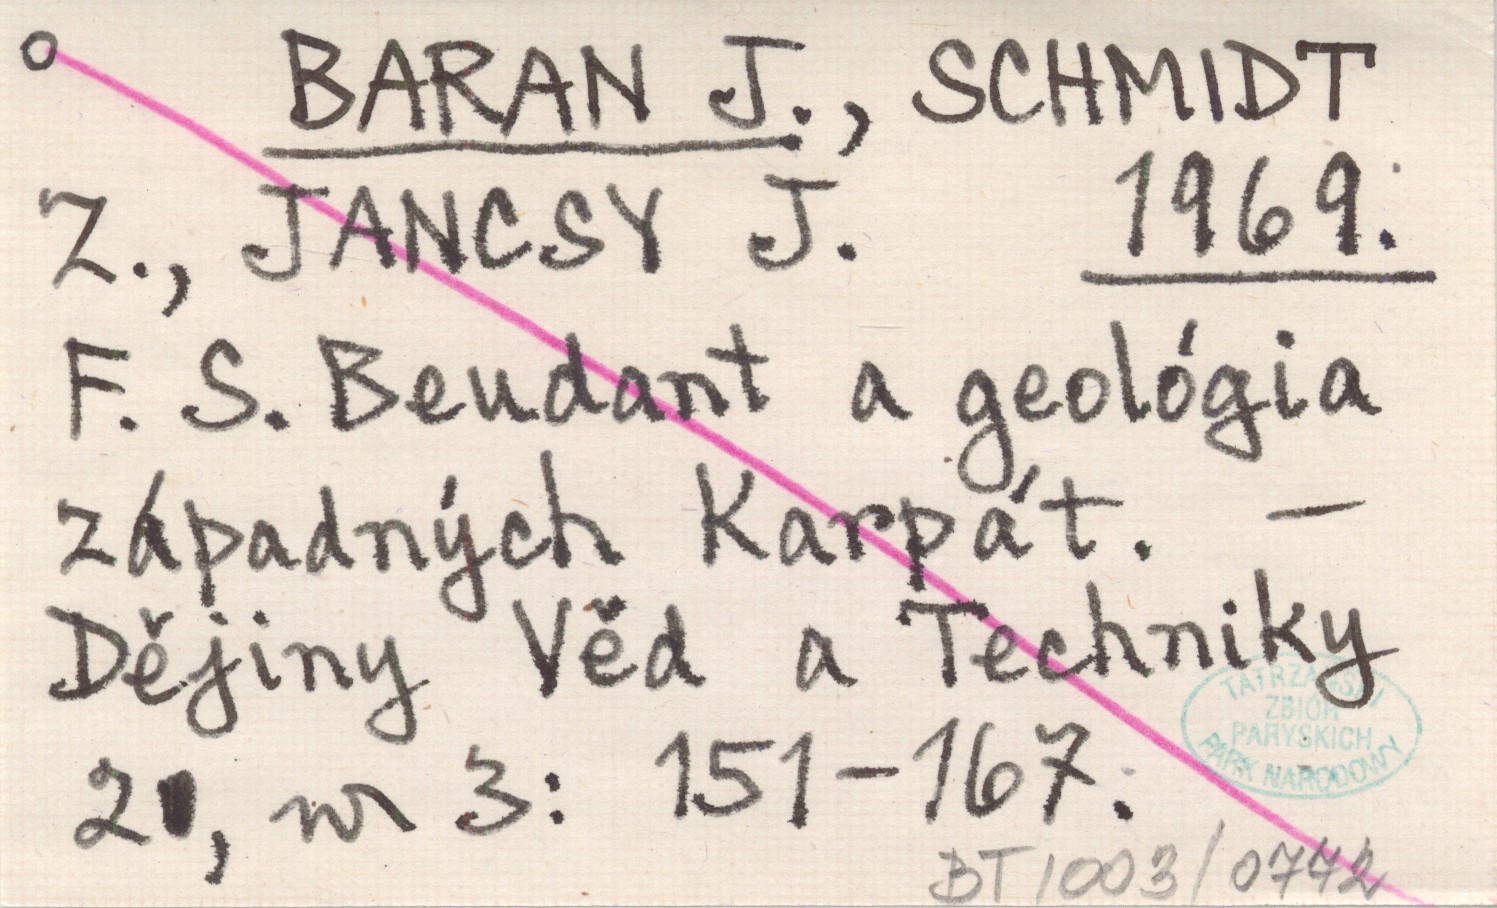 BARAN J., SCHMIDT
Z., JANCSY J. 1969.
F. S. Beudant a geológia
západných Karpát. –
Dějiny Věd a Techniky
2, nr 3: 151–167.
TATRZAŃSKI
ZBIÓR
PARYSKICH
PARK NARODOWY
BT 1003/0772